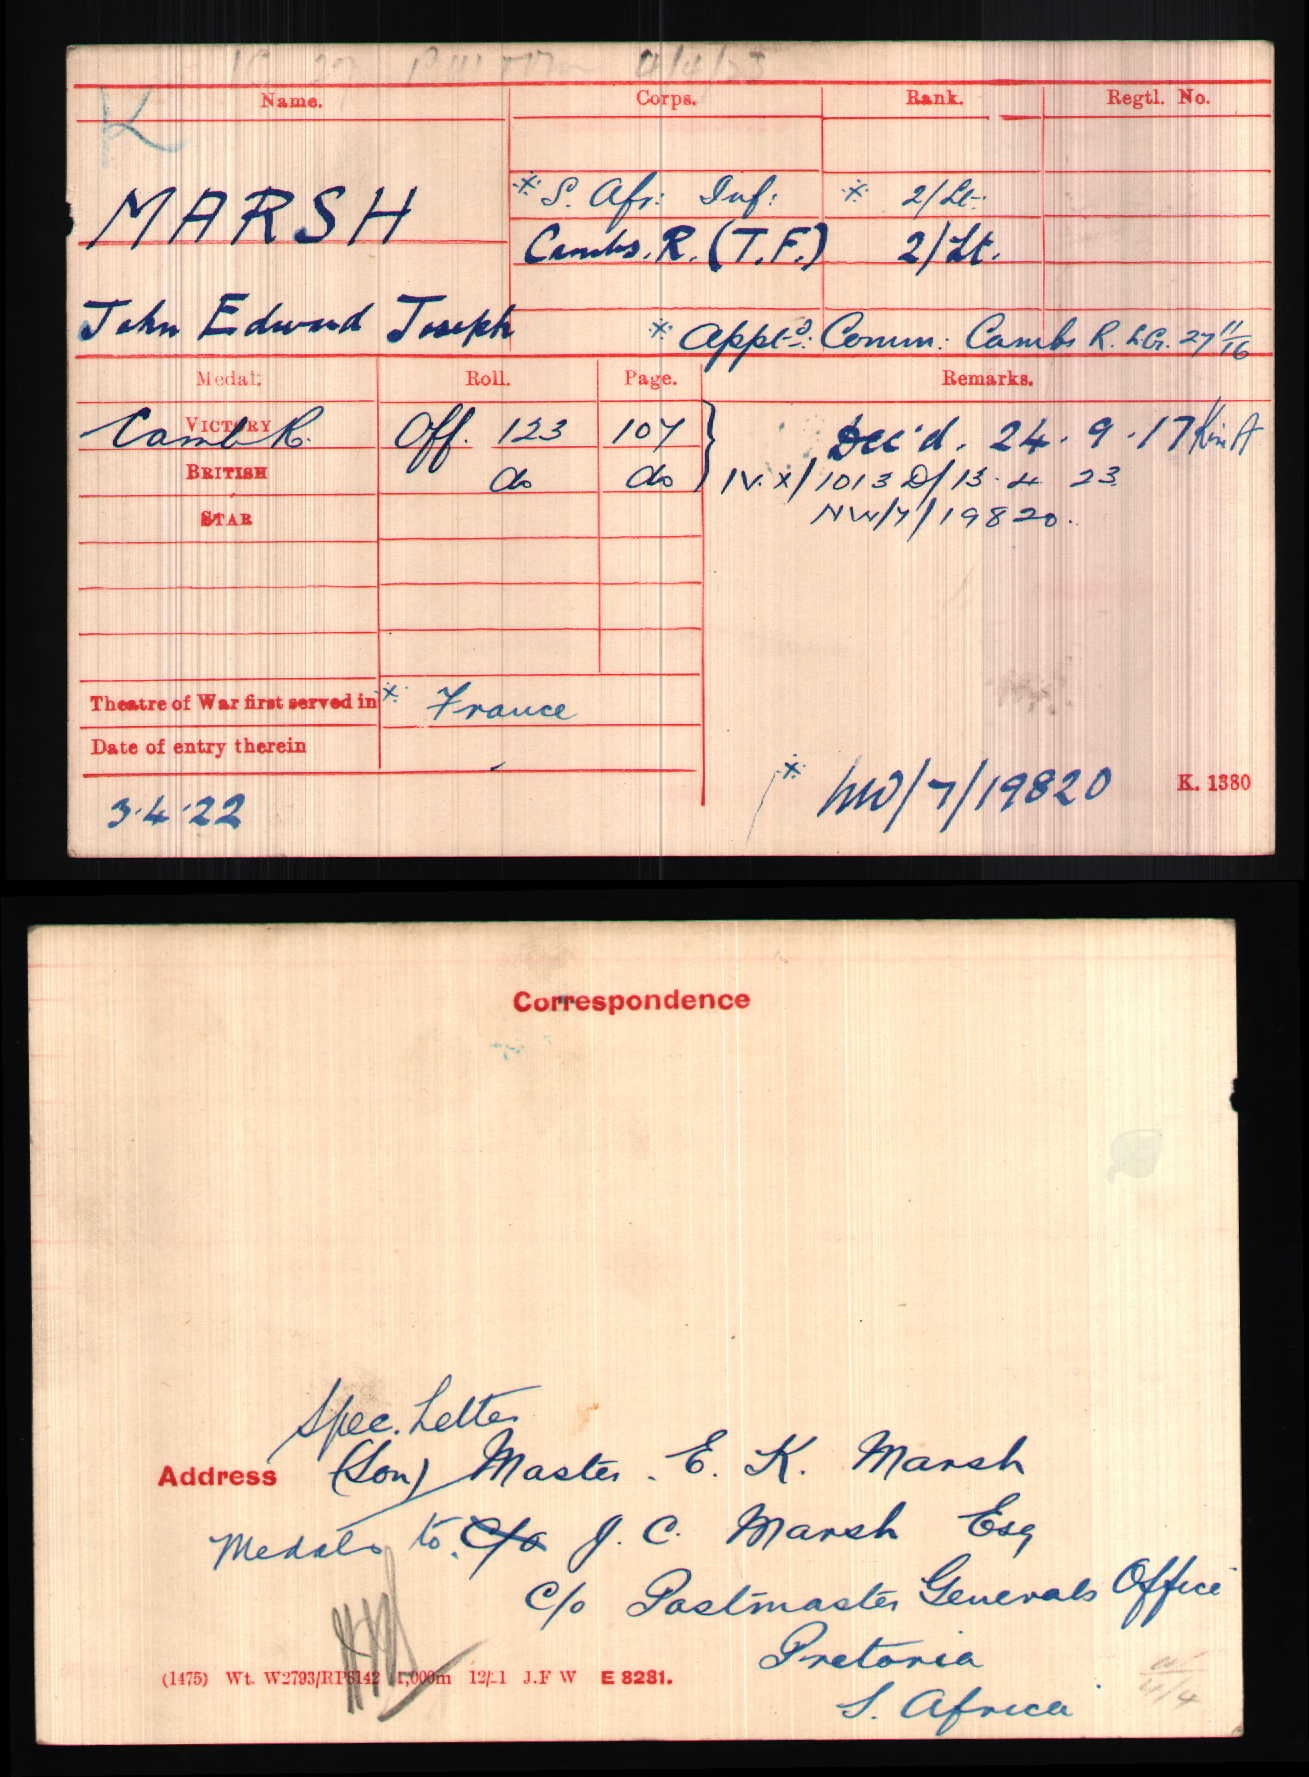 4/4/23
K
Name. Corps. Rank. Regtl. No.
* S. Afr: Inf: * 2/Lt.
MARSH
Cambs. R. (T.F.) 2/Lt.
John Edward Joseph
* Appt.d: Comm: Cambs R. LG. 27/11/16
Medal. Roll. Page. Remarks.
VICTORY Camb R. Off. 123 107 Dec'd. 24.9.17 Kin A
BRITISH do do IV.X/1013 D/13.4 23
STAR NW/7/19820.
Theatre of War first served in * France
Date of entry therein
* NW/7/19820 K. 1380
3.4.22
Correspondence
Spec. Letter
Address (Son) Master. E. K. Marsh
Medals to. C/o J. C. Marsh Esq
C/o Postmaster Generals Office
Pretoria
(1475) Wt. W2793/RP8142 1,000m 12/21 J.F W E 8281.
4/4
S. Africa